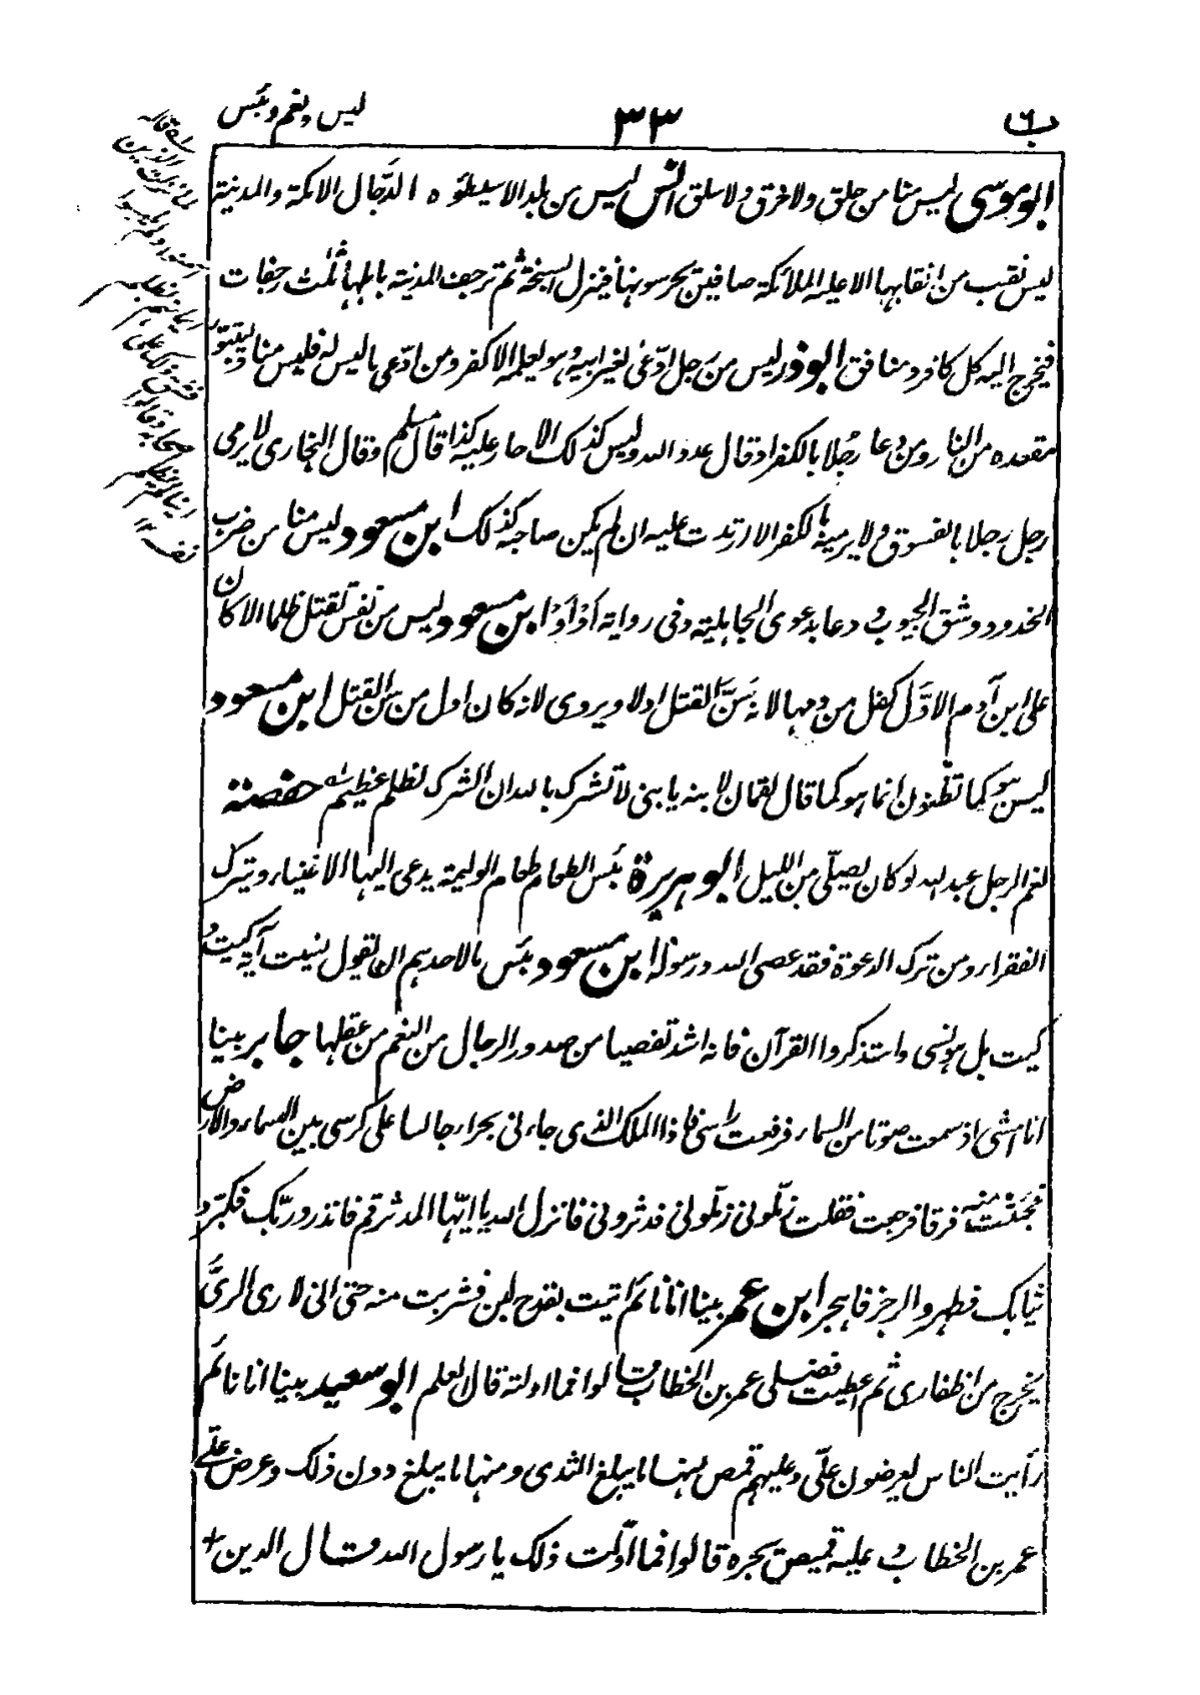 ب٦
٣٣
ليس ونعم وبئس
ابو موسى ليس منا من حلق ولا خرق ولا سلق انس ليس من بلد الا سيطؤه الدجال الا مكة والمدينة
ليس نقب من انقابها الا عليه الملائكة صافين يحرسونها فينزل السبخة ثم ترجف المدينة باهلها ثلث رجفات
فيخرج اليه كل كافر ومنافق ابوذر ليس من رجل ادّعى لغير ابيه وهو يعلمه الا كفر ومن ادّعى ما ليس له فليس منا وليتبوّأ
مقعده من النار ومن دعا رجلا بالكفر او قال عدو الله وليس كذلك الا حار عليه كذا قال مسلم وقال البخارى لا يرمى
رجل رجلا بالفسوق ولا يرميه بالكفر الا ارتدت عليه ان لم يكن صاحبه كذلك ابن مسعود ليس منا من ضرب
الخدود وشق الجيوب ودعا بدعوى الجاهلية وفى رواية اَوْ اَوْ ابن مسعود ليس من نفس تقتل ظلما الا كان
على ابن آدم الاوّل كفل من دمها لانه سَنَّ القتل اولا ويروى لانه كان اول من سن القتل ابن مسعود
ليس هو كما تظنون انما هو كما قال لقمان لابنه يا بنى لا تشرك بالله ان الشرك لظلم عظيم حفصة
نعم الرجل عبد الله لو كان يصلّى من الليل ابو هريرة بئس الطعام طعام الوليمة يدعى اليها الاغنياء ويترك
الفقراء ومن ترك الدعوة فقد عصى الله ورسوله ابن مسعود بئس ما لاحدهم ان يقول نسيت آية كيت و
كيت بل هو نسى واستذكروا القرآن فانه اشد تفصيا من صدور الرجال من النعم من عقلها جابر بينا
انا امشى اذ سمعت صوتا من السماء فرفعت راسى فاذا الملك الذى جاءنى بحراء جالسا على كرسى بين السماء والارض
فجئثت منه فرقا فرجعت فقلت زمّلونى زمّلونى فدثرونى فانزل الله يا ايّها المدثر قم فانذر وربّك فكبّر و
ثيابك فطهر والرجز فاهجر ابن عمر بينا انا نائم اتيت بقدح لبن فشربت منه حتى انى لارى الرىَّ
يخرج من اظفارى ثم اعطيت فضلى عمر بن الخطاب قالوا فما اولته قال العلم ابو سعيد بينا انا نائم
رأيت الناس يعرضون علىّ وعليهم قمص منها ما يبلغ الثدى ومنها ما يبلغ دون ذلك وعرض علىّ
عمر بن الخطاب وعليه قميص يجره قالوا فما اوّلت ذلك يا رسول الله قال الدين